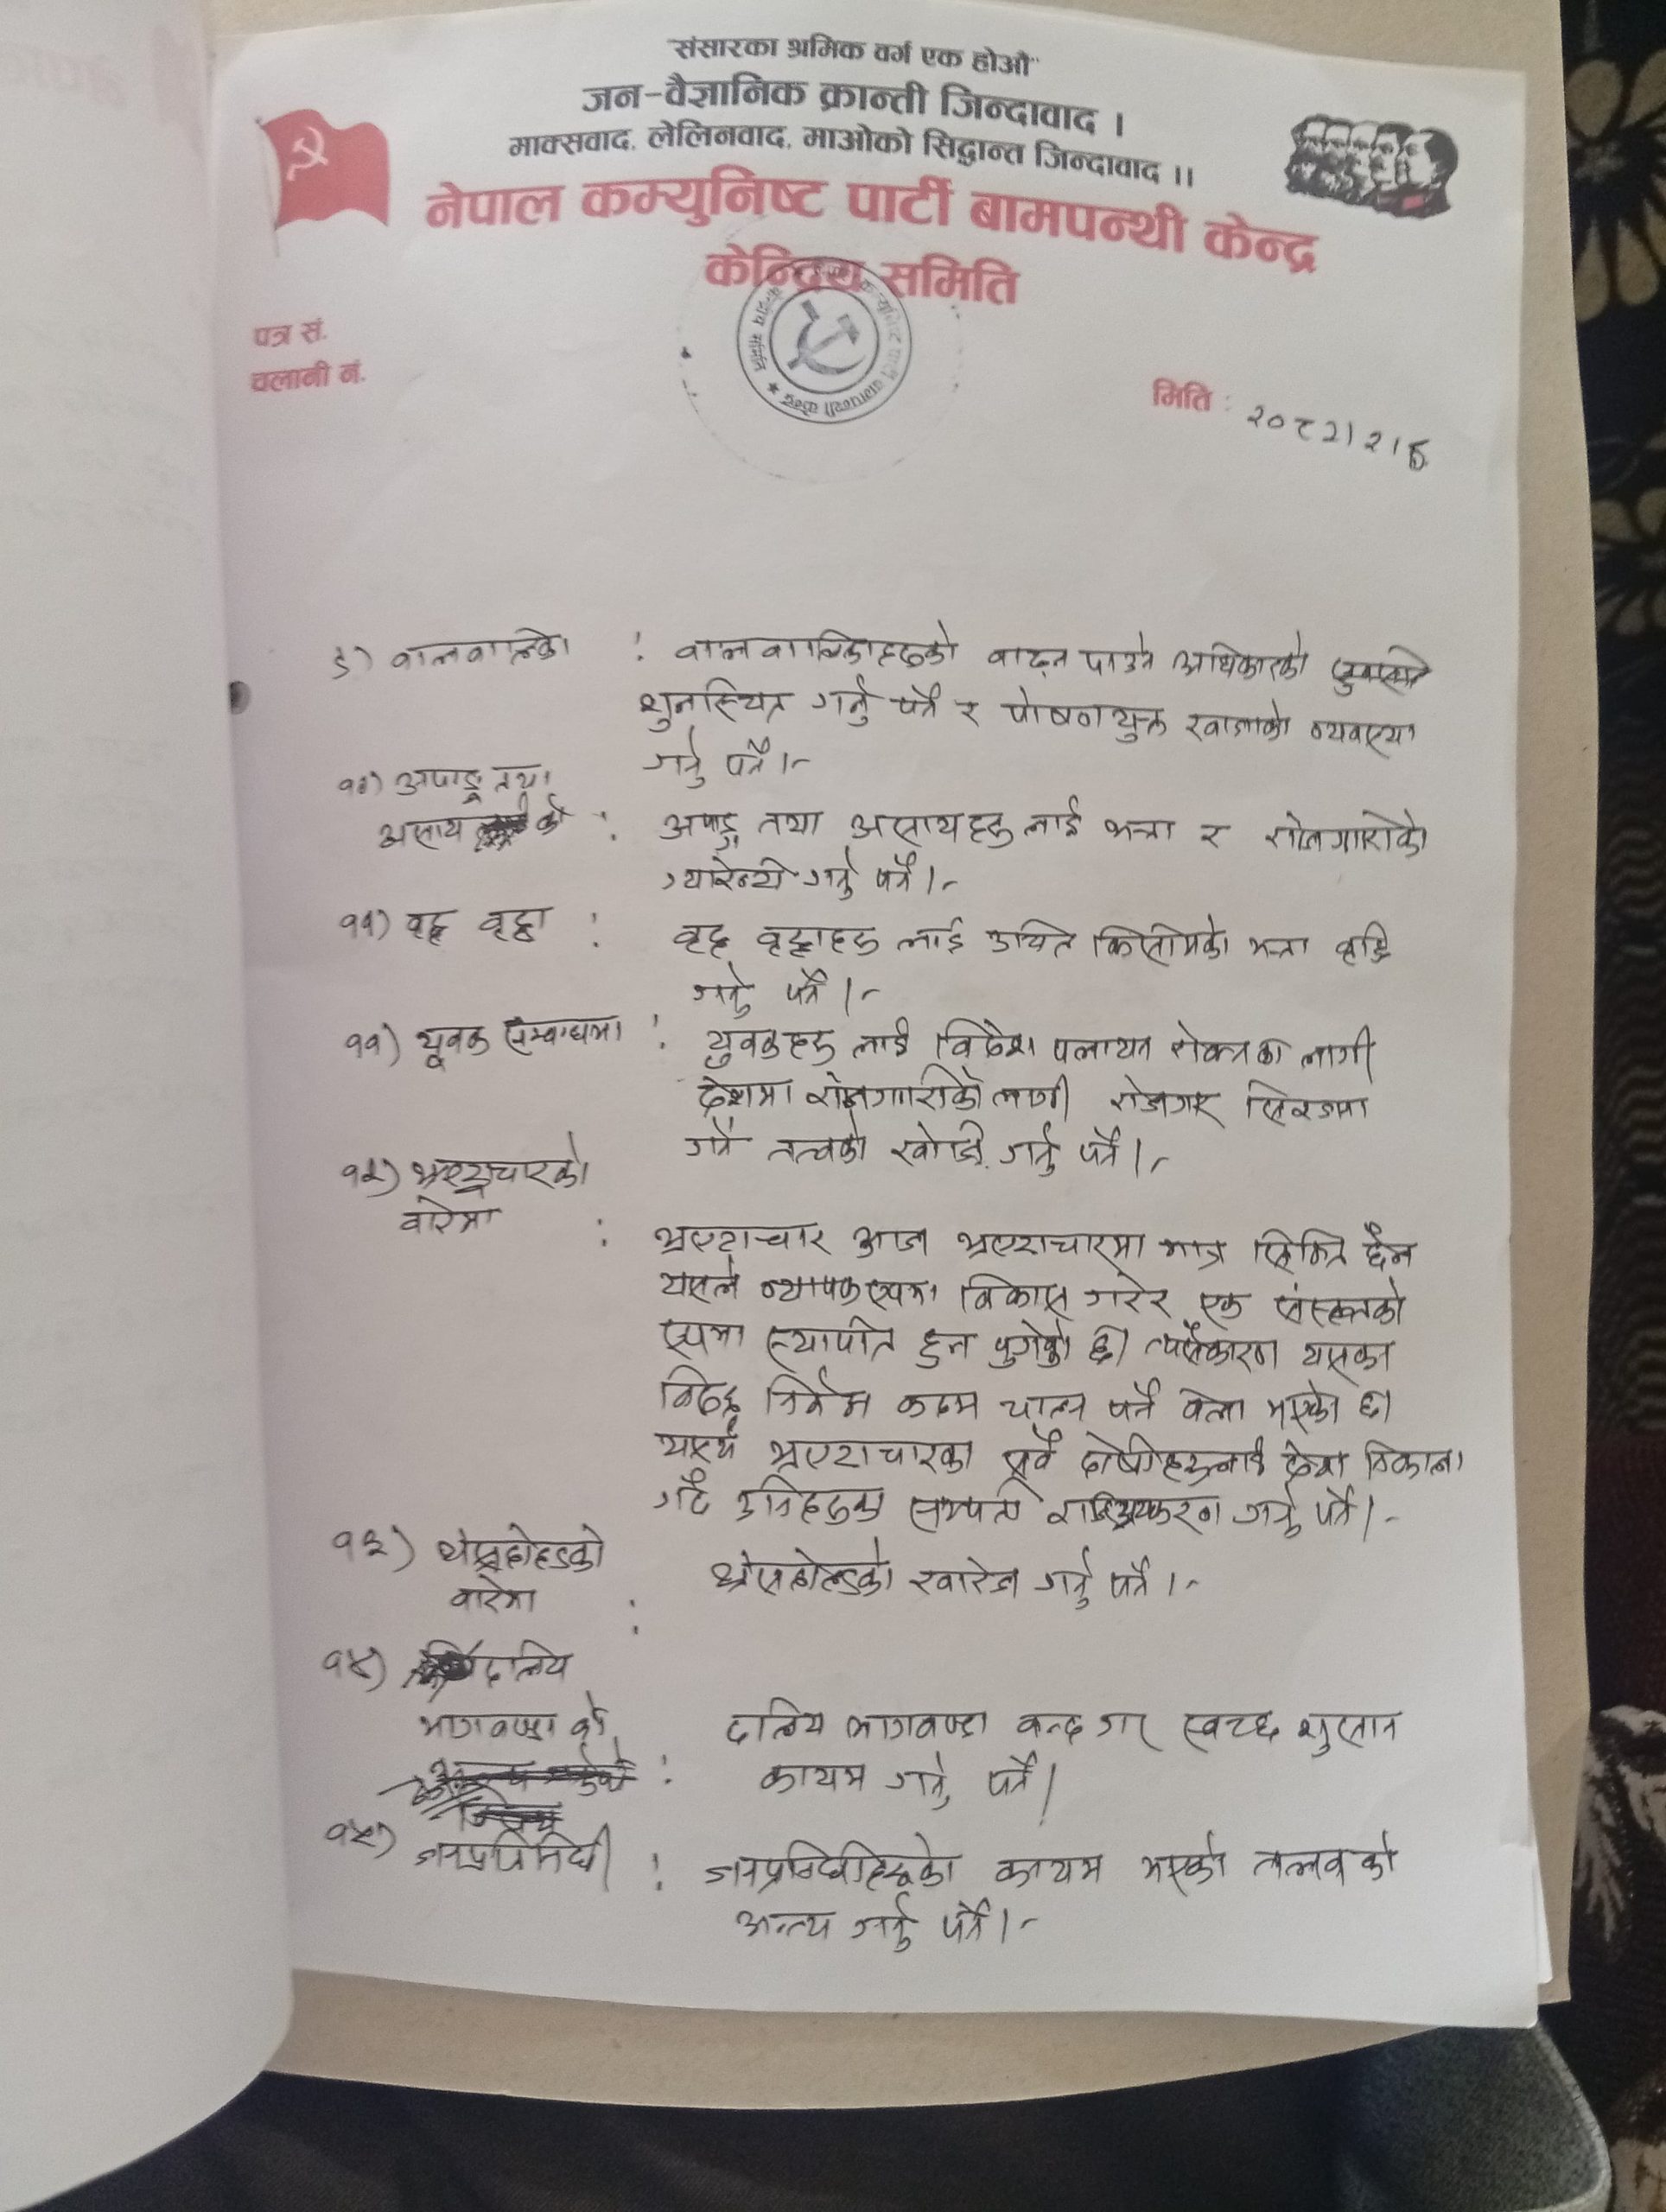 "संसारका श्रमिक वर्ग एक होऔं"
जन-वैज्ञानिक क्रान्ती जिन्दावाद ।
माक्सवाद, लेलिनवाद, माओको सिद्धान्त जिन्दावाद ।।
नेपाल कम्युनिष्ट पार्टी बामपन्थी केन्द्र
केन्द्रिय समिति
पत्र सं.
चलानी नं.
मिति : २०८२।२।६
९) वालवालिका : वालवालिकाहरुको वाच्न पाउने अधिकारको
शुनस्चित गर्नु पर्ने र पोषणयुक्त खाजाको व्यवस्था
गर्नु पर्ने।-
१०) अपाङ्ग तथा
असाय को : अपाङ्ग तथा असायहरु लाई भत्ता र रोजगारीको
ग्यारेन्टी गर्नु पर्ने।-
११) वृद्ध वृद्धा : वृद्ध वृद्धाहरु लाई उचित किसीमको भत्ता वृद्धि
गर्नु पर्ने।-
११) यूवक सम्वन्धमा : युवकहरु लाई विदेश पलायन रोक्नका लागी
देशमा रोजगारीको लागी रोजगार सिरजना
गर्ने तत्वको खोजी गर्नु पर्ने।-
१२) भ्रष्टाचारको
वारेमा : भ्रष्टाचार आज भ्रष्टाचारमा मात्र सिमित छैन
यसले व्यापक रुपमा विकास गरेर एक संस्कृतको
रुपमा स्थापीत हुन पुगेको छ। त्यसैकारण यसका
विरुद्ध निर्मम कदम चाल्न पर्ने वेला भएको छ।
यसर्थ भ्रष्टाचारका सवै दोषीहरुलाई देश निकाला
गर्दै उनिहरुको सम्पती राष्ट्रियकरण गर्नु पर्ने।-
१३) थ्रेसहोल्डको
वारेमा : थ्रेसहोल्डको खारेज गर्नु पर्ने।-
१४) दलिय
भागवण्डा को : दलिय भागवण्डा वन्द गर स्वच्छ शुसान
कायम गर्नु पर्ने।
१५) जनप्रतिनिधी : जनप्रनिधीहरुको कायम भएको तलवको
अन्त्य गर्नु पर्ने।-